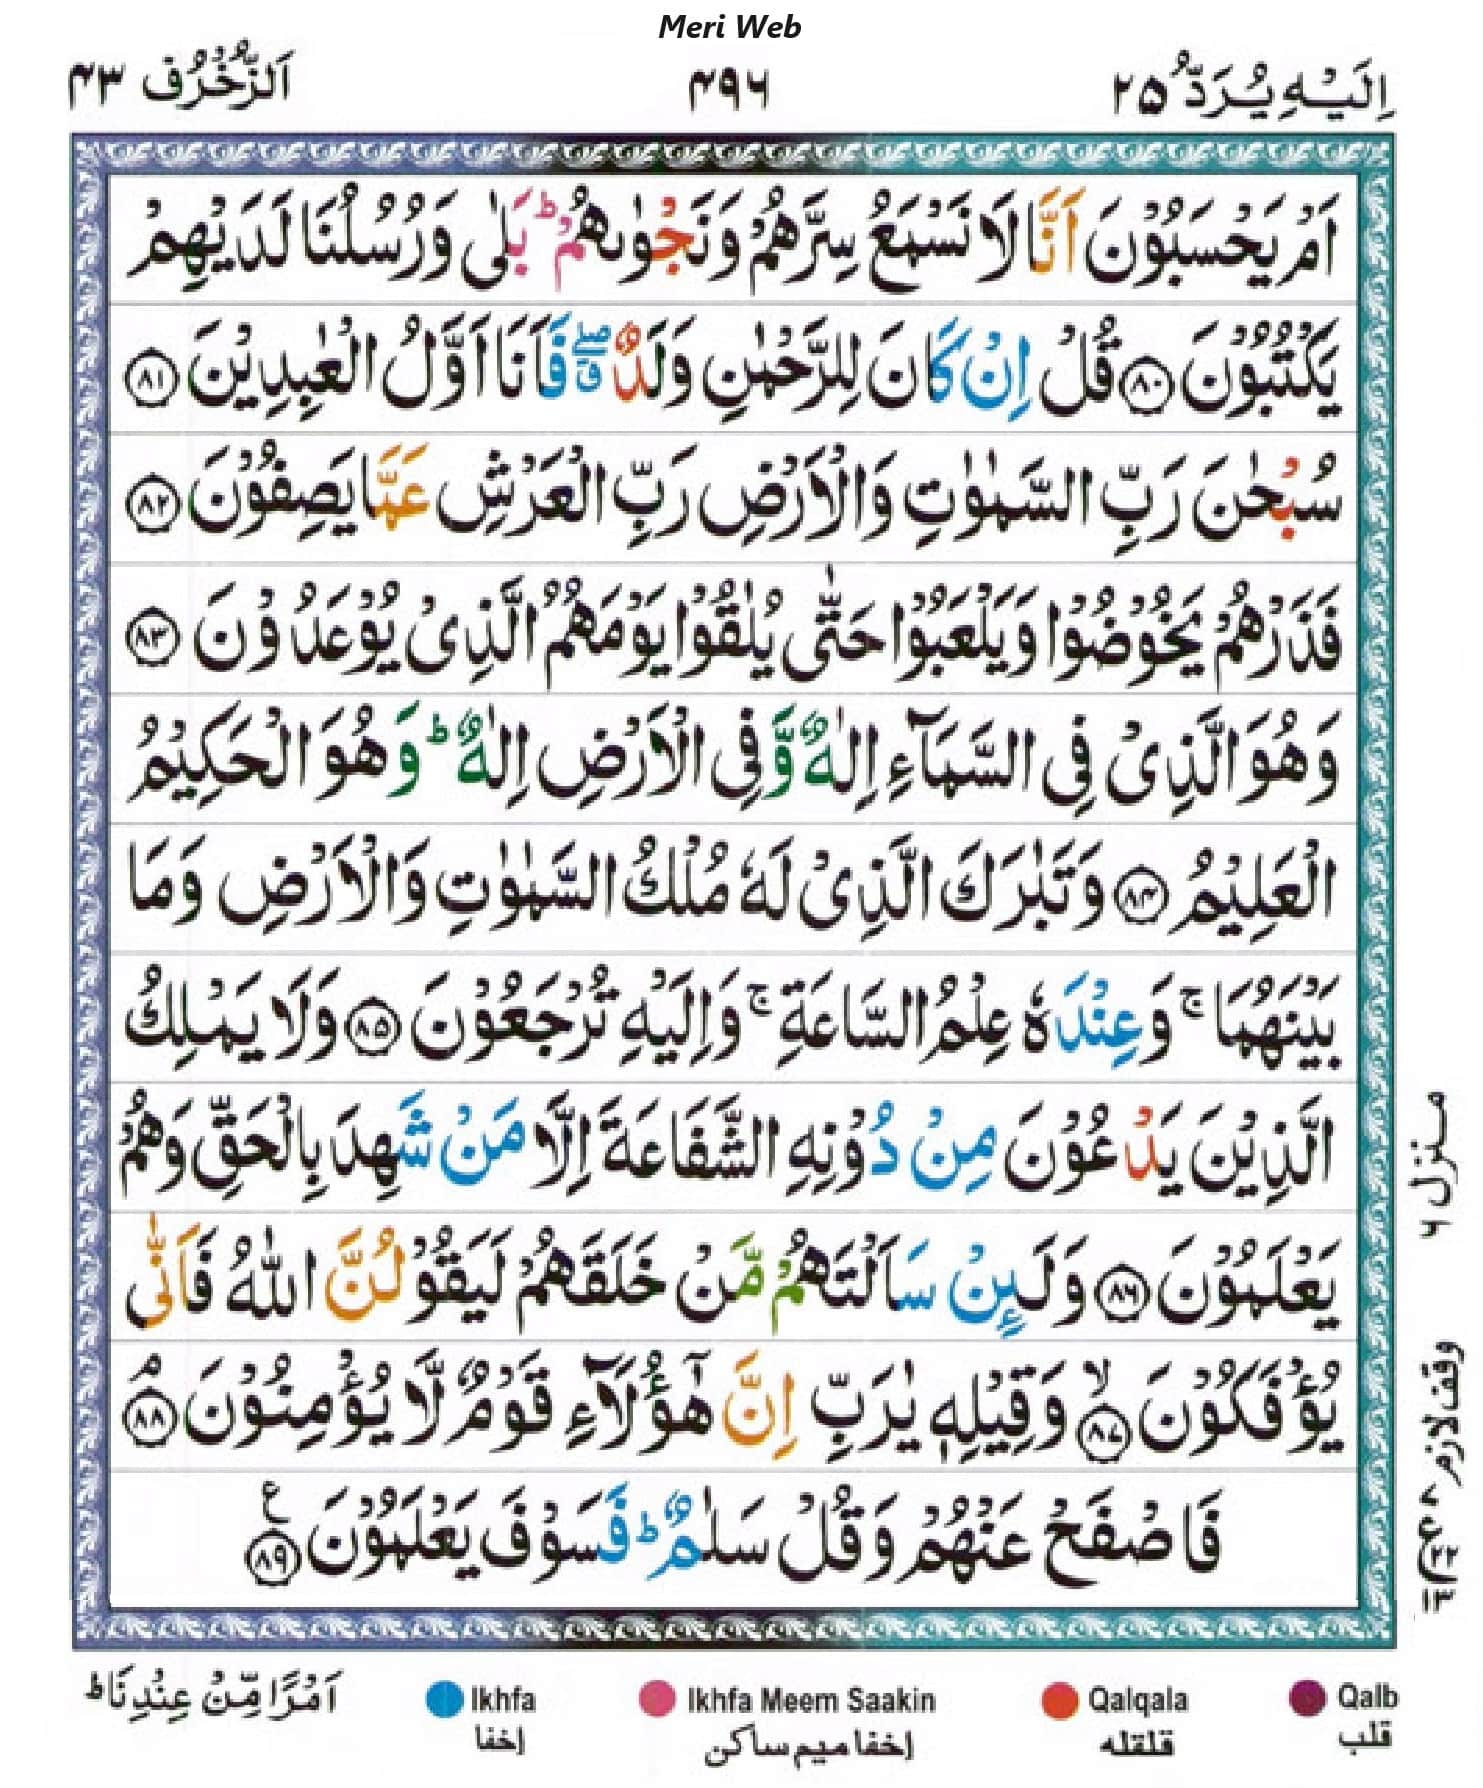 Meri Web
اِلَیْهِ یُرَدُّ ۲۵ ۴۹۶ اَلزُّخْرُف ۴۳
اَمْ یَحْسَبُوْنَ اَنَّا لَا نَسْمَعُ سِرَّهُمْ وَنَجْوٰىهُمْ ؕ بَلٰی وَرُسُلُنَا لَدَیْهِمْ
یَكْتُبُوْنَ ﴿۸۰﴾ قُلْ اِنْ كَانَ لِلرَّحْمٰنِ وَلَدٌ ۖۗ فَاَنَا اَوَّلُ الْعٰبِدِیْنَ ﴿۸۱﴾
سُبْحٰنَ رَبِّ السَّمٰوٰتِ وَالْاَرْضِ رَبِّ الْعَرْشِ عَمَّا یَصِفُوْنَ ﴿۸۲﴾
فَذَرْهُمْ یَخُوْضُوْا وَیَلْعَبُوْا حَتّٰی یُلٰقُوْا یَوْمَهُمُ الَّذِیْ یُوْعَدُوْنَ ﴿۸۳﴾
وَهُوَ الَّذِیْ فِی السَّمَآءِ اِلٰهٌ وَّفِی الْاَرْضِ اِلٰهٌ ؕ وَهُوَ الْحَكِیْمُ
الْعَلِیْمُ ﴿۸۴﴾ وَتَبٰرَكَ الَّذِیْ لَهٗ مُلْكُ السَّمٰوٰتِ وَالْاَرْضِ وَمَا
بَیْنَهُمَا ۚ وَعِنْدَهٗ عِلْمُ السَّاعَةِ ۚ وَاِلَیْهِ تُرْجَعُوْنَ ﴿۸۵﴾ وَلَا یَمْلِكُ
الَّذِیْنَ یَدْعُوْنَ مِنْ دُوْنِهِ الشَّفَاعَةَ اِلَّا مَنْ شَهِدَ بِالْحَقِّ وَهُمْ
یَعْلَمُوْنَ ﴿۸۶﴾ وَلَىِٕنْ سَاَلْتَهُمْ مَّنْ خَلَقَهُمْ لَیَقُوْلُنَّ اللّٰهُ فَاَنّٰی
یُؤْفَكُوْنَ ۙ﴿۸۷﴾ وَقِیْلِهٖ یٰرَبِّ اِنَّ هٰۤؤُلَآءِ قَوْمٌ لَّا یُؤْمِنُوْنَ ۘ﴿۸۸﴾
فَاصْفَحْ عَنْهُمْ وَقُلْ سَلٰمٌ ؕ فَسَوْفَ یَعْلَمُوْنَ ﴿۸۹﴾ ع
منزل ۶
وقف لازم
اَمْرًا مِّنْ عِنْدِنَا ؕ
Ikhfa
اخفا
Ikhfa Meem Saakin
اخفا میم ساکن
Qalqala
قلقله
Qalb
قلب